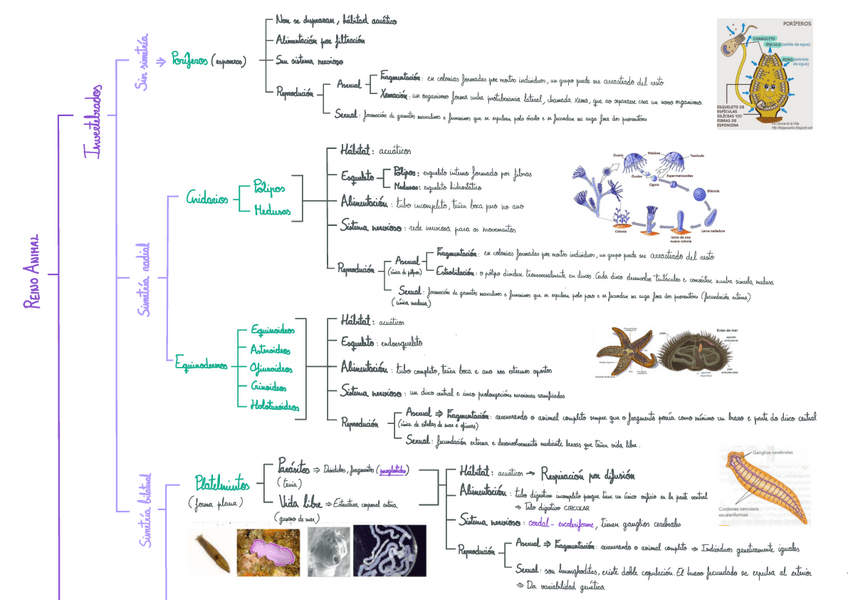 REINO ANIMAL
Invertebrados
Sin simetría
Poríferos (esponxas)
Non se desprazan, hábitat acuático
Alimentación por filtración
Sen sistema nervioso
Reprodución
Asexual
Fragmentación: en colonias formadas por moitos individuos, un grupo puede ser arrastrado del resto
Xemación: un organismo forma unha protuberancia lateral, chamada xema, que ao separarse crea un novo organismo.
Sexual: formación de gametos masculinos e femininos que se expulsan polo ósculo e se fecundan na auga fóra dos proxenitores
PORÍFEROS
ESQUELETO DE
ESPÍCULAS
SILÍCEAS Y/O
FIBRAS DE
ESPONGINA
Simetría radial
Cnidarios
Pólipos
Medusas
Hábitat: acuáticos
Esqueleto
Pólipos: esqueleto interno formado por fibras
Medusas: esqueleto hidrostático
Alimentación: tubo incompleto, teñen boca pero no ano
Sistema nervioso: rede nerviosa para os movementos
Reprodución
Asexual
(única de pólipos)
Fragmentación: en colonias formadas por moitos individuos, un grupo puede ser arrastrado del resto
Estrobilación: o pólipo divídese transversalmente en discos. Cada disco desenvolve tentáculos e convértese nunha pequena medusa
Sexual: formación de gametos masculinos e femininos que se expulsan polo poro e se fecundan na auga fóra dos proxenitores (fecundación externa)
(única medusa)
Colonia
Larva nadadora
Blástula
Equinodermos
Equinoideos
Asteroideos
Ofiuroideos
Crinoideos
Holoturoideos
Hábitat: acuáticos
Esqueleto: endoesqueleto
Alimentación: tubo completo, teñen boca e ano nos extremos opostos
Sistema nervioso: un disco central e cinco prolongacións nerviosas ramificadas
Reprodución
Asexual ⇒ Fragmentación: rexenerando o animal completo sempre que o fragmento posúa como mínimo un brazo e parte do disco central
(única de estrelas de mar e ofiuras)
Sexual: fecundación externa e desenvolvemento mediante larvas que teñen vida libre.
Erizo de mar
Simetría bilateral
Platelmintos
(forma plana)
Parásitos ⇒ Divididos, fragmentos (proglótides)
(tenia)
Vida libre ⇒ Estructura corporal enteira
(gusano de mar)
Hábitat: acuático → Respiración por difusión
Alimentación: tubo digestivo incompleto porque ten un único orificio en la parte ventral
⇒ Tubo digestivo CIRCULAR
Sistema nervioso: cordal - escaleriforme, tienen ganglios cerebrales
Reprodución
Asexual ⇒ Fragmentación: rexenerando o animal completo ⇒ Individuos geneticamente iguales
Sexual: son hermafroditas, existe doble copulación. El huevo fecundado se expulsa al exterior
⇒ Da variabilidad genética
Ganglios cerebrales
Cordones nerviosos
escaleriformes